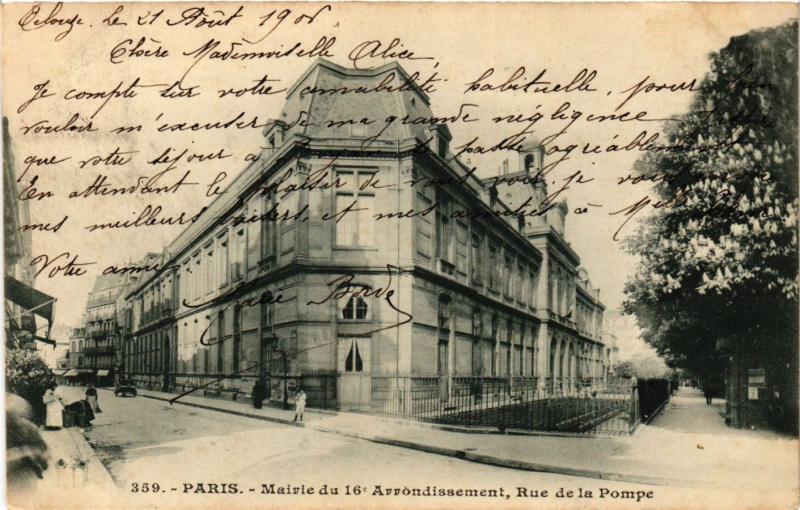 le 21 Août 190
Chère Mademoiselle Alice,
Je compte sur votre amabilité habituelle, pour bien
vouloir m'excuser de ma grande négligence
que votre séjour a passé agréablement
En attendant le plaisir de vous voir, je vous envoie
mes meilleurs baisers, et mes amitiés à
Votre amie
359. - PARIS. - Mairie du 16e Arrondissement, Rue de la Pompe